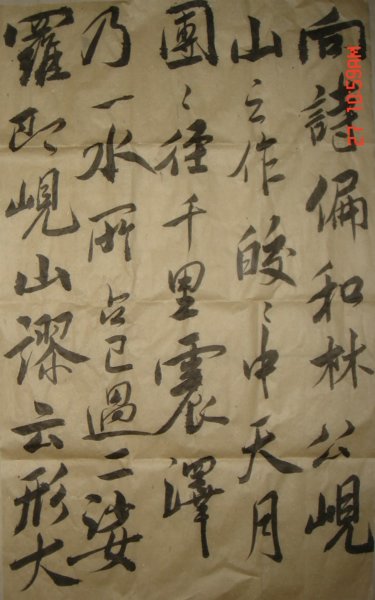 向詩偏和林公峴
山之作皎〻中天月
團〻徑千里震澤
乃一水所占已過二娑
羅即峴山謬云形大